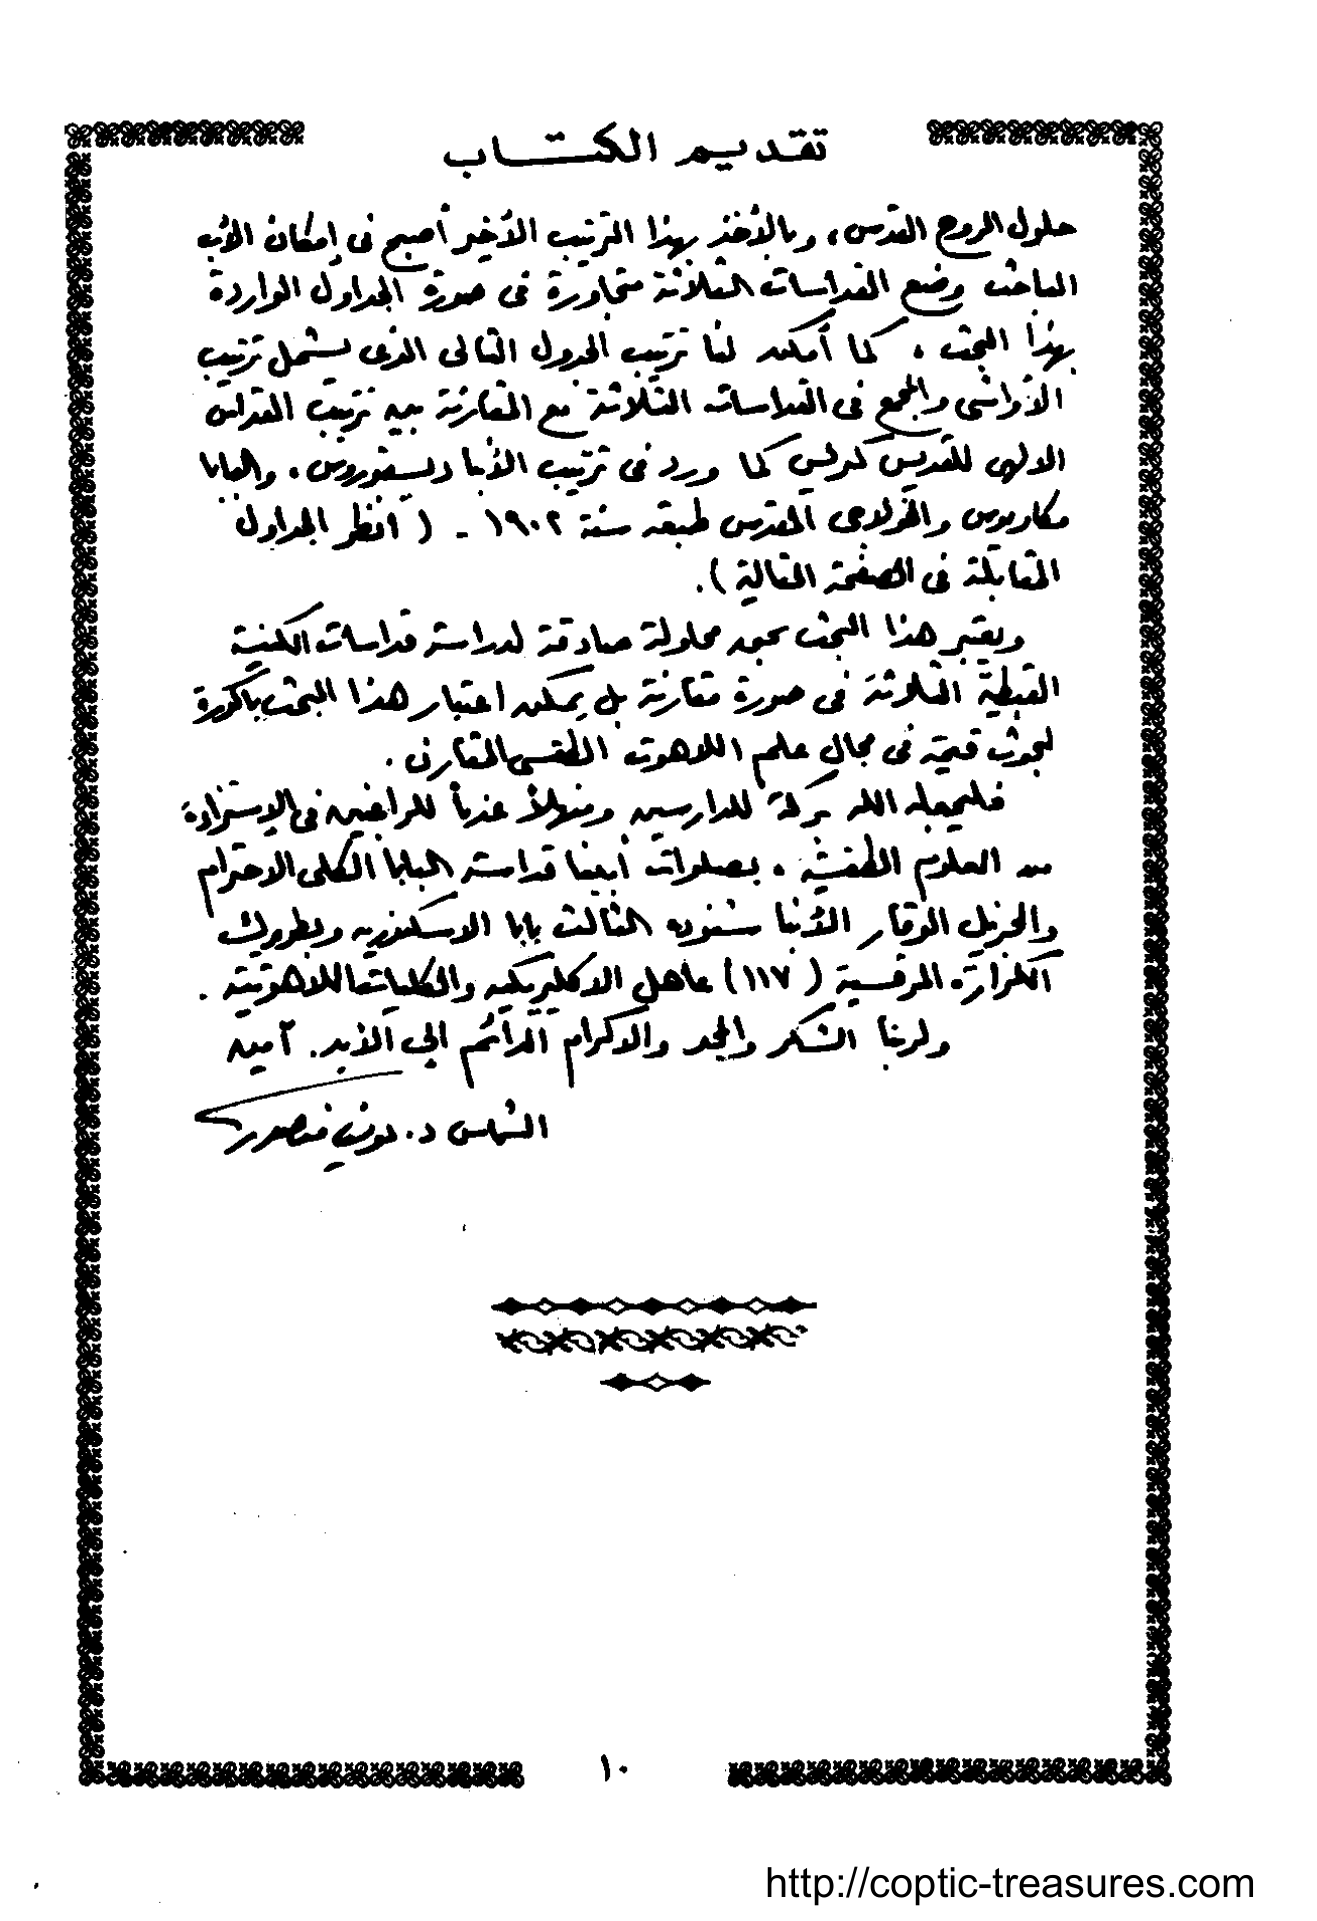 تقديم الكتاب
حلول الروح القدس، وبالأخذ بهذا الترتيب الأخير أصبح فى إمكان الأب
الباحث وضع القداسات الثلاثة متجاورة فى صورة الجداول الواردة
بهذا البحث ، كما أمكن لنا ترتيب الجدول التالى الذى يشمل ترتيب
الأواشى والمجمع فى القداسات الثلاثة مع المقارنة بين ترتيب القداس
الالهى للقديس كيرلس كما ورد فى ترتيب الأنبا ديسقوروس ، والبابا
مكاريوس والخولاجى المقدس طبعة سنة ١٩٠٢ - ( انظر الجداول
المقابلة فى الصفحة التالية ) .
ويعتبر هذا البحث بحق محاولة صادقة لدراسة قداسات الكنيسة
القبطية الثلاثة فى صورة مقارنة بل يمكن اعتبار هذا البحث باكورة
لبحوث قيمة فى مجال علم اللاهوت الطقسى المقارن .
فليجعله الله بركة للدارسين ومنهلاً عذباً للراغبين فى الإستزادة
من العلوم الطقسية ، بصلوات أبينا قداسة البابا الكلى الاحترام
والجزيل الوقار الأنبا شنوده الثالث بابا الاسكندرية وبطريرك
الكرازة المرقسية ( ١١٧ ) عاهل الاكليريكية والكليات اللاهوتية .
ولربنا الشكر والمجد والاكرام الدائم الى الأبد . آمين
الشماس د. منصور
١٠
http://coptic-treasures.com